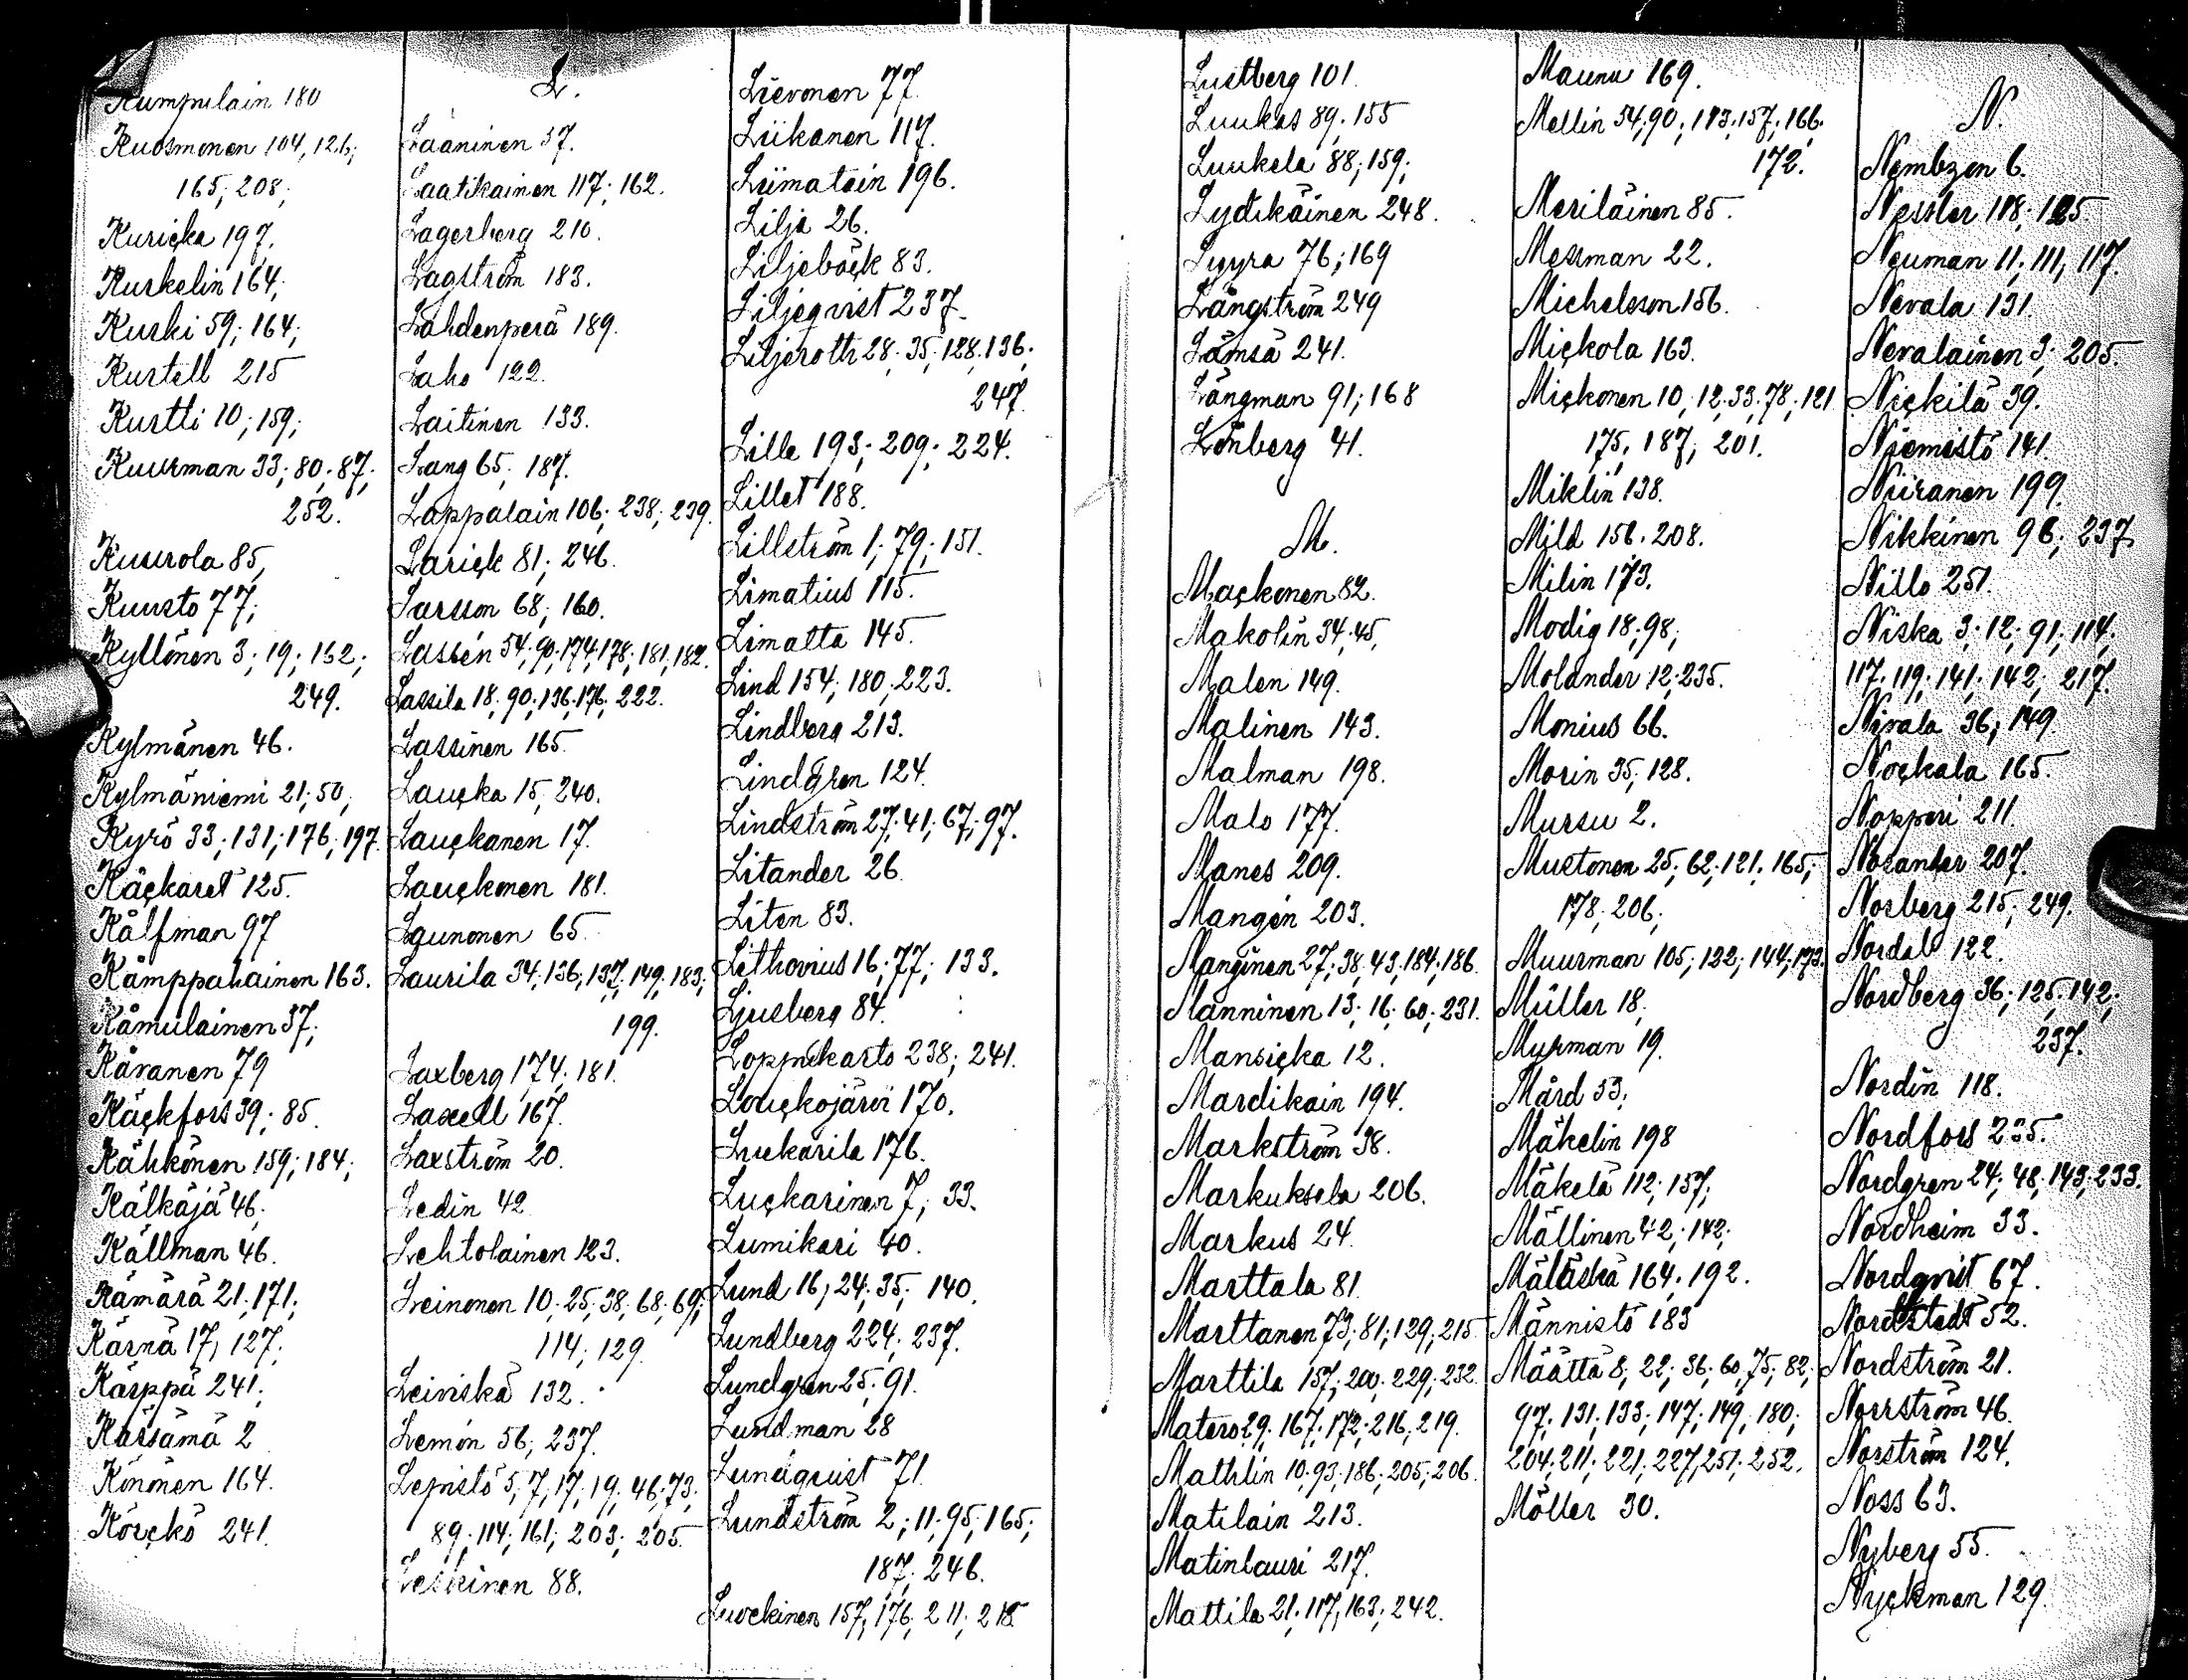 Kumpulain 180
Kuosmonen 104, 126;
165; 208;
Kuricka 197.
Kurkelin 164;
Kurki 59; 164;
Kurtell 215
Kurtti 10; 159;
Kuurman 33; 80; 87;
252.
Kuurola 85,
Kuusto 77;
Kyllönen 3; 19; 162;
249.
Kylmänen 46.
Kylmäniemi 21; 50;
Kyrö 33; 131; 176; 197.
Käckaret 125.
Kälfman 97
Kämppahainen 163.
Kämulainen 37;
Käranen 79
Käckfors 39; 85
Kähkönen 159; 184;
Kälkäjä 46;
Källman 46.
Kämärä 21; 171;
Kärnä 17; 127;
Kärppä 241;
Kärsämä 2
Könönen 164.
Körckö 241.
L.
Laaninen 37.
Laatikainen 117; 162.
Lagerberg 210.
Lagström 183.
Lahdenperä 189.
Laho 122.
Laitinen 133.
Lang 65; 187.
Lappalain 106; 238; 239.
Larick 81; 246.
Larsson 68; 160.
Lassén 54; 90; 174; 178; 181; 182.
Lassila 18; 90; 136; 176; 222.
Lassinen 165.
Laucka 15; 240.
Lauckanen 17.
Lauckonen 181.
Launonen 65.
Laurila 34; 136; 137; 149; 183;
199.
Laxberg 174; 181.
Laxell 167.
Laxström 20.
Ledin 42
Lehtolainen 123.
Leinonen 10; 25; 38; 68; 69;
114; 129.
Leiviskä 132.
Lemon 56; 237.
Lepistö 5; 7; 17; 19; 46; 73;
89; 114; 161; 203; 205.
Leskinen 88.
Lievonen 77.
Liikanen 117.
Liimatain 196.
Lilja 26.
Liljebäck 83.
Liljeqvist 237.
Liljeroth 28; 35; 128; 136;
247.
Lille 193; 209; 224.
Lillet 188.
Lillström 1; 79; 151.
Limatius 115.
Limatta 145.
Lind 154; 180; 223.
Lindberg 213.
Lindgren 124.
Lindström 27; 41; 67; 97.
Litander 26.
Liten 83.
Lithovius 16; 77; 133.
Ljusberg 84.
Loppikarto 238; 241.
Louckojärvi 170.
Luukarila 176.
Luckarinen 7; 33.
Lumikari 40.
Lund 16; 24; 35; 140.
Lundberg 224; 237.
Lundgren 25; 91.
Lundman 28
Lundqvist 71.
Lundström 2; 11; 95; 165;
187; 246.
Luvckinen 157; 176; 211; 218
Lustberg 101.
Luukas 89; 155
Luukela 88; 159;
Lydikäinen 248.
Lyyra 76; 169
Långström 249
Lämsä 241.
Längman 91; 168
Lönberg 41.
M.
Mackonen 82.
Makolin 34; 45;
Malen 149.
Malinen 143.
Malman 198.
Malo 177.
Manes 209.
Mangén 203.
Manginen 27; 38; 43; 184; 186.
Manninen 13; 16; 60; 231.
Mansicka 12.
Mardikain 194.
Markström 38.
Markuksela 206.
Markus 24.
Marttala 81.
Marttanen 73; 81; 129; 215
Marttila 157; 200; 229; 232.
Matero 29; 167; 172; 216; 219.
Mathlin 10; 93; 186; 205; 206.
Matilain 213.
Matinlauri 217.
Mattila 21; 117; 163; 242.
Maunu 169.
Mellin 54; 90; 113; 157; 166;
172.
Meriläinen 85.
Messman 22.
Michelsson 156.
Mickola 163.
Mickonen 10; 12; 33; 78; 121
175; 187; 201.
Miklin 138.
Mild 156; 208.
Milin 173.
Modig 18; 98;
Molander 12; 235.
Monius 66.
Morin 35; 128.
Mursu 2.
Mustonen 25; 62; 121; 165;
178; 206;
Muurman 105; 122; 144; 173.
Müller 18;
Myrman 19.
Mård 33;
Mäkelin 198
Mäkelä 112; 157;
Mällinen 42; 142;
Mäläskä 164; 192.
Männistö 183
Määttä 8; 22; 36; 60; 75; 82;
97; 131; 133; 147; 149; 180;
204; 211; 221; 227; 251; 252.
Möller 30.
N.
Nembzen 6.
Nessler 118; 125.
Neuman 11; 111; 117.
Nevala 131.
Nevalainen 3; 205.
Nickilä 39.
Niemistö 141.
Niiranen 199.
Nikkinen 96; 237.
Nillo 251.
Niska 3; 12; 91; 114;
117; 119; 141; 142; 217.
Nivala 36; 149.
Nockala 165.
Nopperi 211.
Norander 207.
Norberg 215; 249.
Nordal 122
Nordberg 36; 125; 142;
237.
Nordin 118.
Nordfors 235.
Nordgren 24; 48; 143; 233.
Nordheim 33.
Nordqvist 67.
Nordstedt 52.
Nordström 21.
Norrström 46.
Norström 124.
Noss 63.
Nyberg 55.
Nyckman 129.